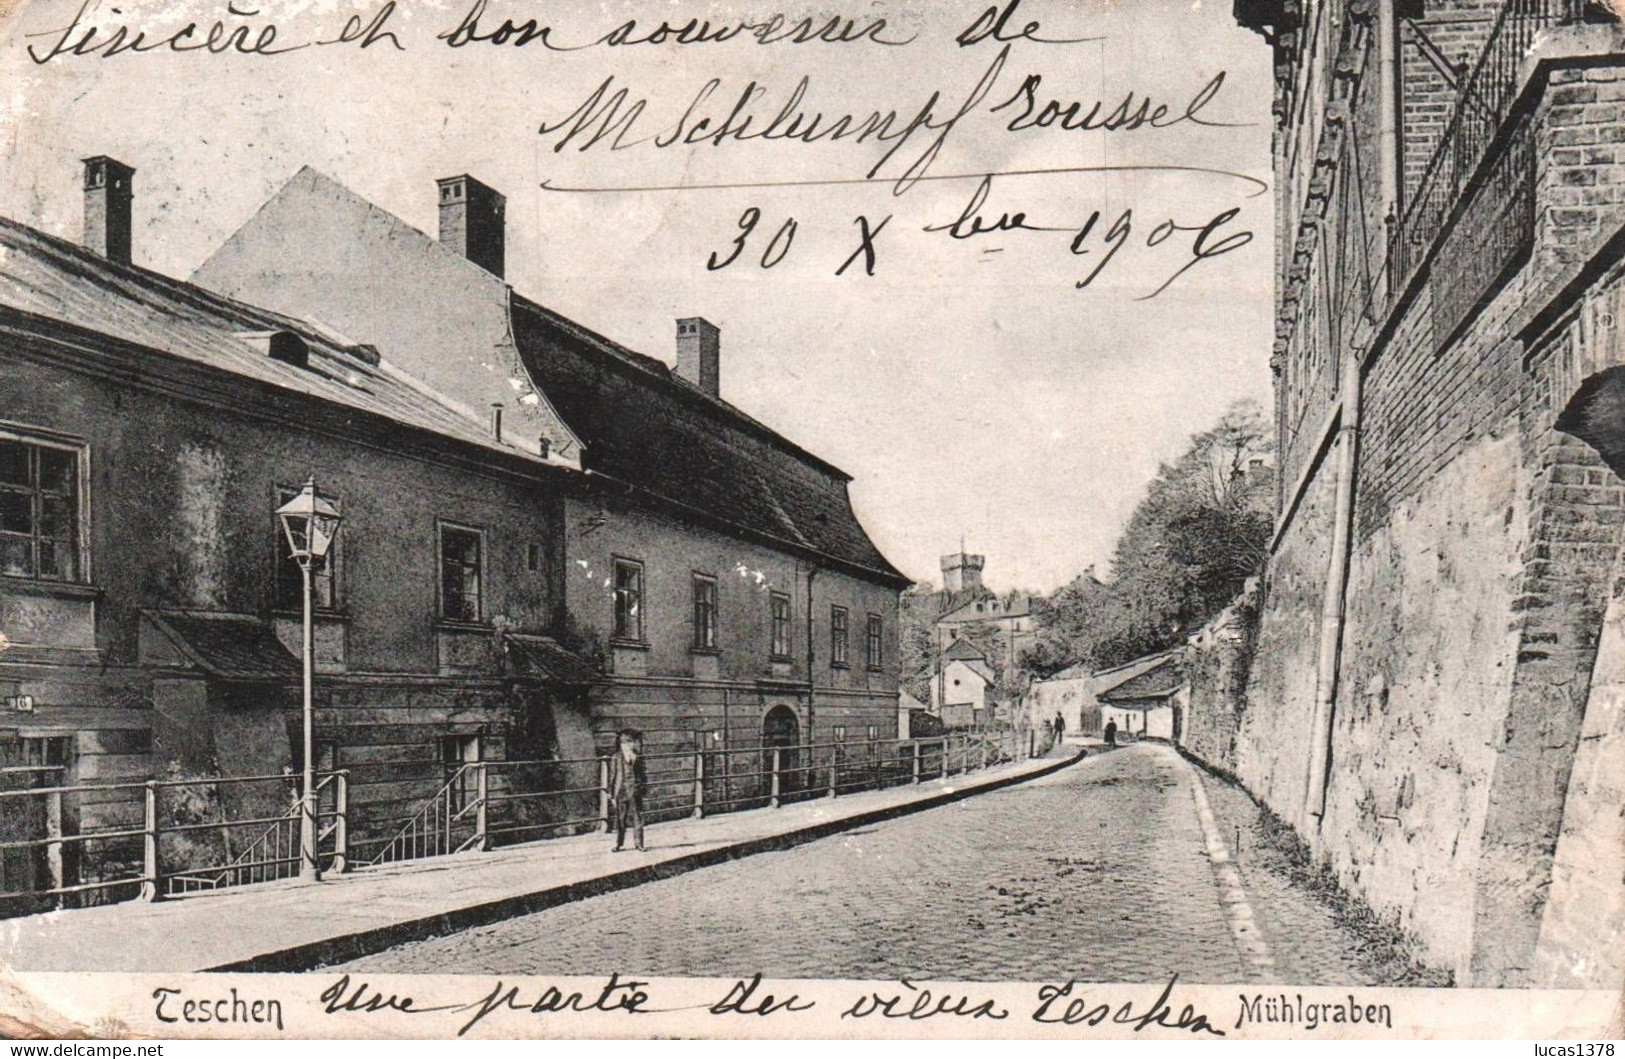 Sincère et bon souvenir de
M Schlumpf Roussel
30 Xbre 1906
16
Teschen Une partie du vieux Teschen Mühlgraben
lucas1378